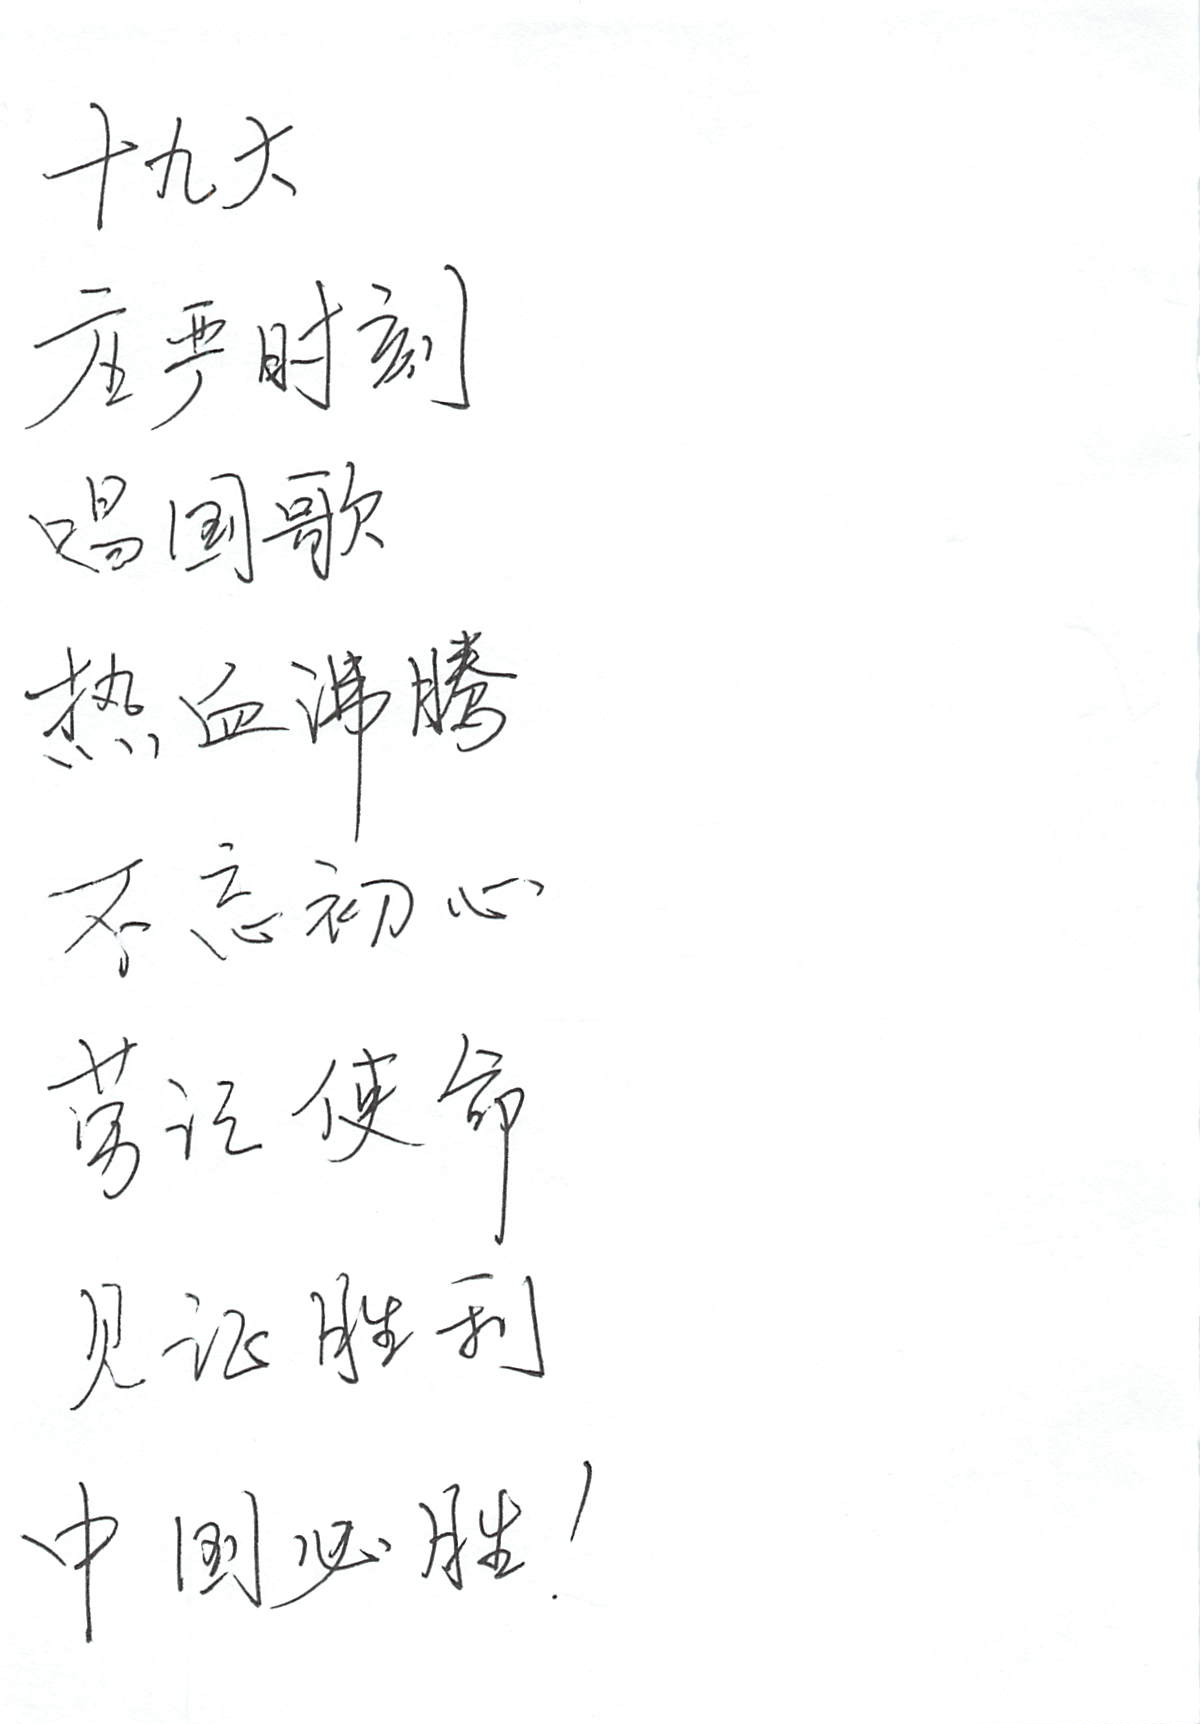 十九大
庄严时刻
唱国歌
热血沸腾
不忘初心
劳记使命
见证胜利
中国必胜！